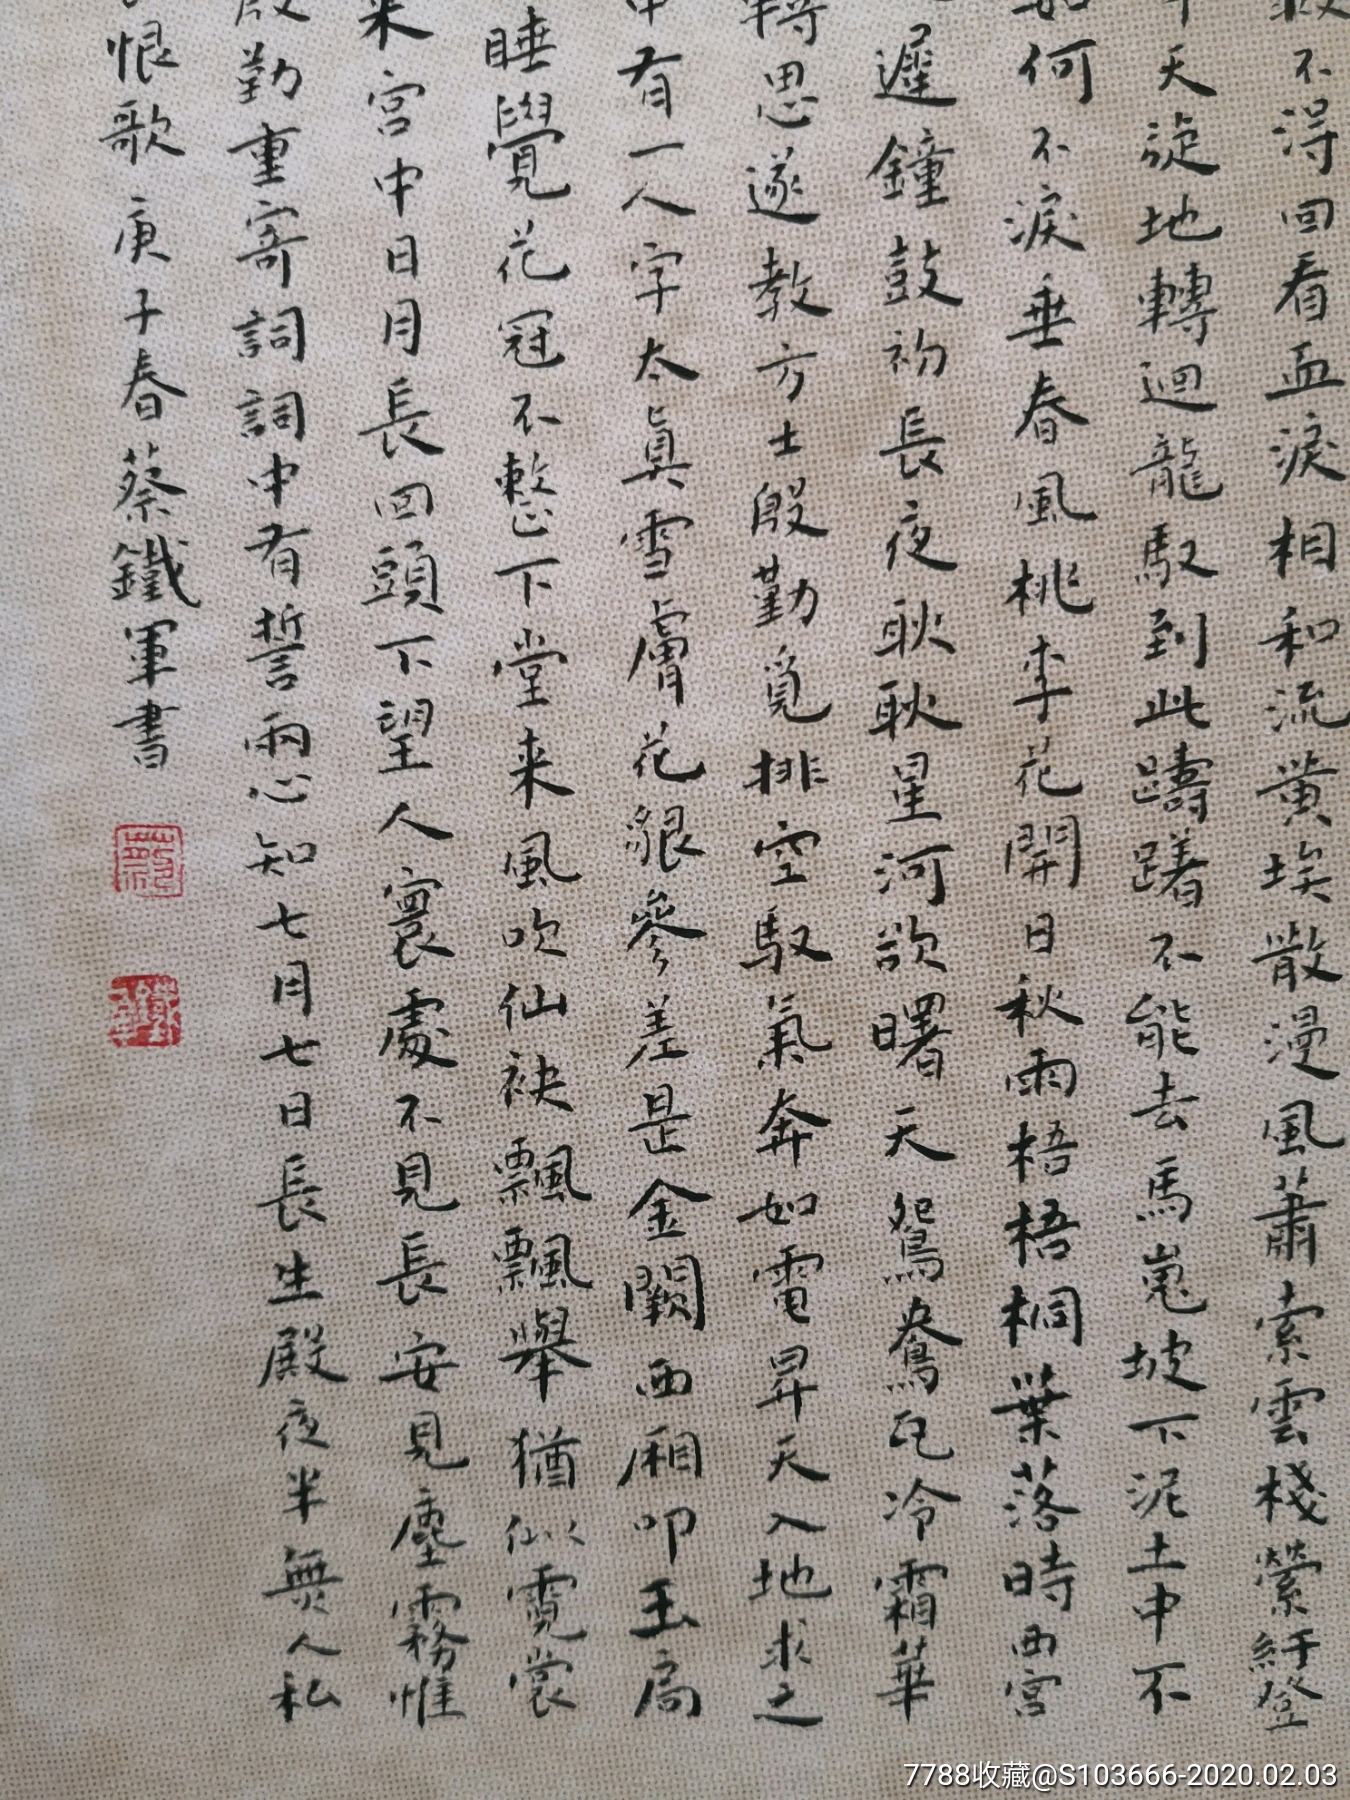 救不得回看血淚相和流黄埃散漫風蕭索雲棧縈紆登
天旋地轉迴龍馭到此躊躇不能去馬嵬坡下泥土中不
如何不淚垂春風桃李花開日秋雨梧梧桐葉落時西宮
遲鐘鼓初長夜耿耿星河欲曙天鴛鴦瓦冷霜華
轉思遂教方士殷勤覓排空馭氣奔如電昇天入地求之
中有一人字太真雪膚花貌參差是金闕西厢叩玉扃
睡覺花冠不整下堂来風吹仙袂飄飄舉猶似霓裳
来宮中日月長回頭下望人寰處不見長安見塵霧惟
殷勤重寄詞詞中有誓兩心知七月七日長生殿夜半無人私
恨歌庚子春蔡鐵軍書
7788收藏@S103666-2020.02.03